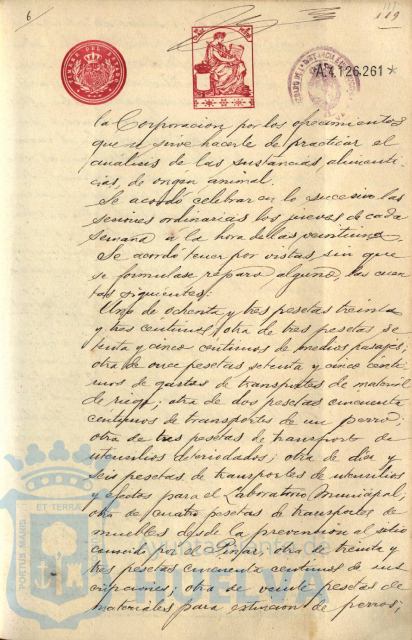 6
119
TIMBRE DEL ESTADO
A.4.126.261*
la Corporacion por los ofrecimientos
que se sirve hacerle de practicar el
analisis de las sustancias alimenti-
cias, de origen animal.
Se acordó celebrar en lo sucesivo las
sesiones ordinarias los jueves de cada
semana a la hora de las veintiuna.
Se acordó tener por vistas, sin que
se formulase reparo alguno, las cuen-
tas siguientes:
Una de ochenta y tres pesetas treinta
y tres centimos; otra de tres pesetas se-
tenta y cinco centimos de medios pasajes;
otra de once pesetas setenta y cinco centi-
mos de gastos de transportes de material
de riego; otra de dos pesetas cincuenta
centimos de transportes de un perro;
otra de tres pesetas de transporte de
utensilios deteriorados; otra de diez y
seis pesetas de transportes de utensilios
y efectos para el Laboratorio Municipal;
otra de cuatro pesetas de transportes de
muebles desde la prevencion al sitio
conocido por el Pinar; otra de treinta y
tres pesetas cincuenta centimos de sus-
cripciones; otra de veinte pesetas de
materiales para extincion de perros;
PORTUS MARIS ET TERRAE
Ayuntamiento de
HUELVA